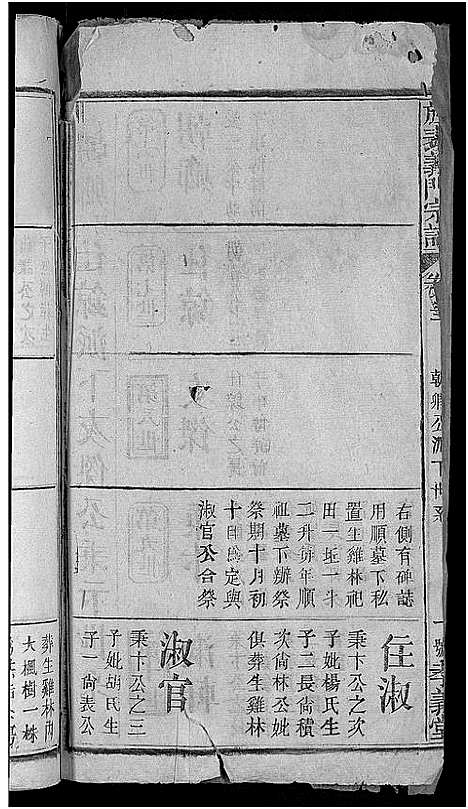 旌表義門宗譜
卷三
朝卿公派下世系
一號
孝義堂
右側有碑誌
用順墓下私
置生雞林祀
田一坵一斗
二升每年順
祖墓下辦祭
祭期十月初
十日爲定與
淑官公合祭
任淑
秉卞公之次
子妣楊氏生
子二長尙積
次尙林公妣
俱葬生雞林
淑官
秉卞公之三
子妣胡氏生
子一尙表公
葬生雞林內
大楓樹一株